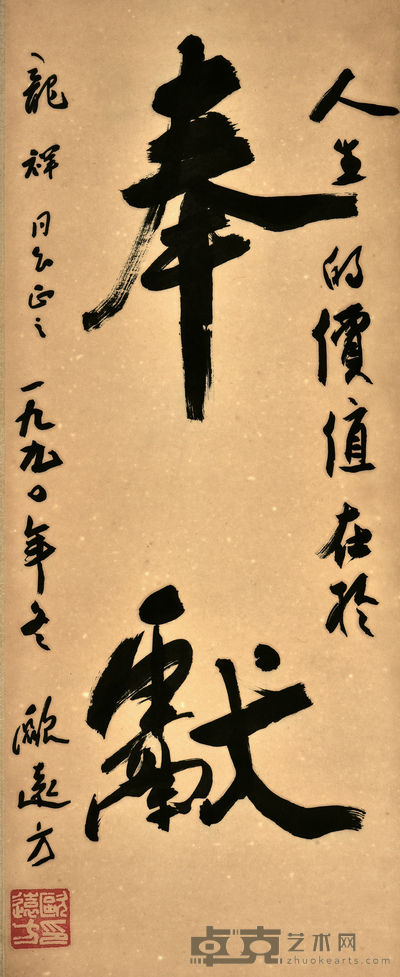 人生的價值在於
奉獻
龍祥同志正之
一九九〇年冬
歐遠方
歐遠方印
卓克艺术网
zhuokearts.com